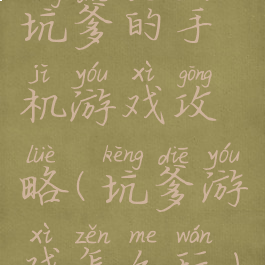 坑爹的手
jī yóu xì gōng
机游戏攻
lüè kēng diē yóu
略(坑爹游
xì zěn me wán
戏怎么玩)